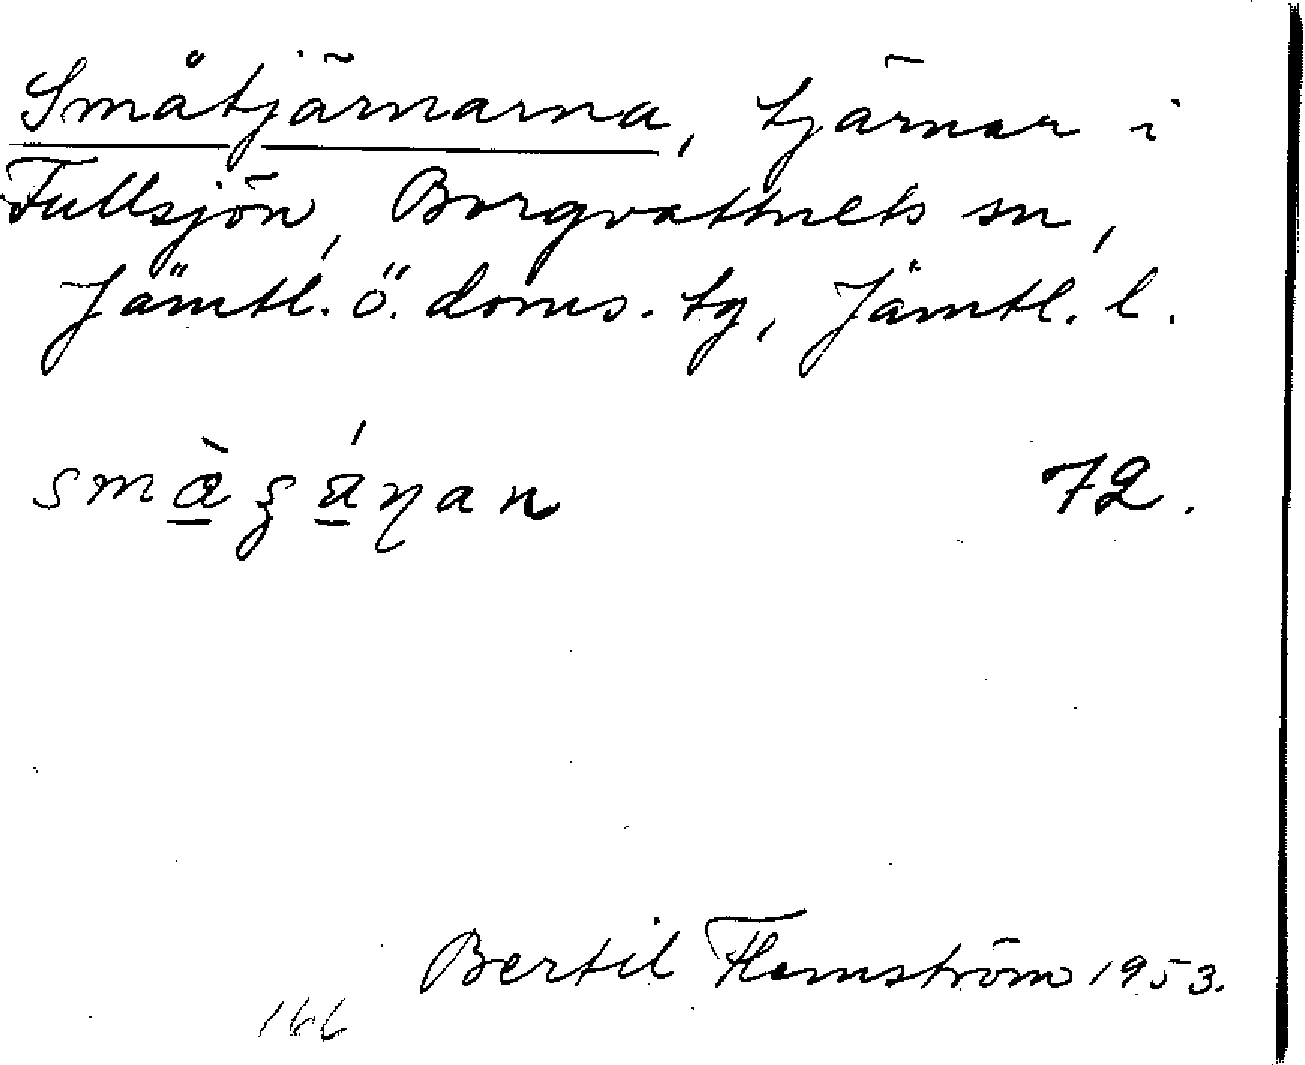 Småtjärnarna, tjärnar i
Fullsjön, Borgvattnets sn,
Jämtl. ö. doms. tg, Jämtl. l.
72.
Bertil Flemström 1953.
166